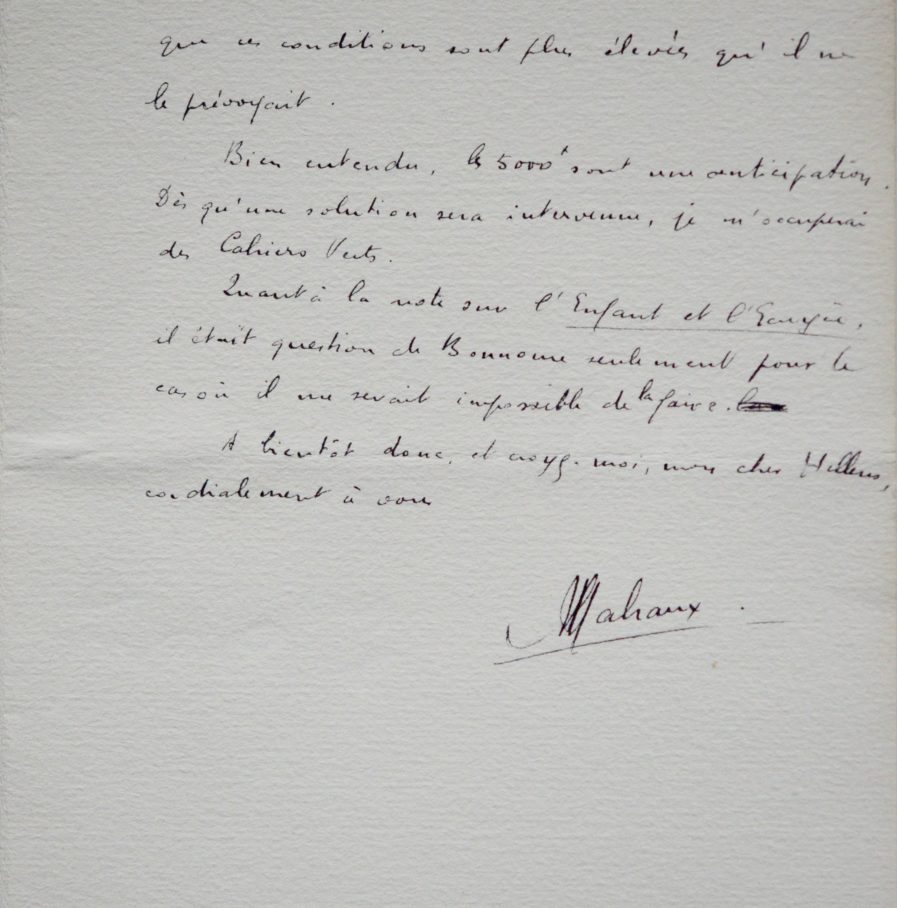 que ces conditions sont plus élevées qu'il ne
le prévoyait.
Bien entendu, les 5000 f sont une anticipation.
Dès qu'une solution sera intervenue, je m'occuperai
des Cahiers Verts.
Quant à la note sur l'Enfant et l'Ecuyère,
il était question de Bonnome seulement pour le
cas où il me serait impossible de la faire.
A bientôt donc, et croyez-moi, mon cher Hellens,
cordialement à vous
Malraux